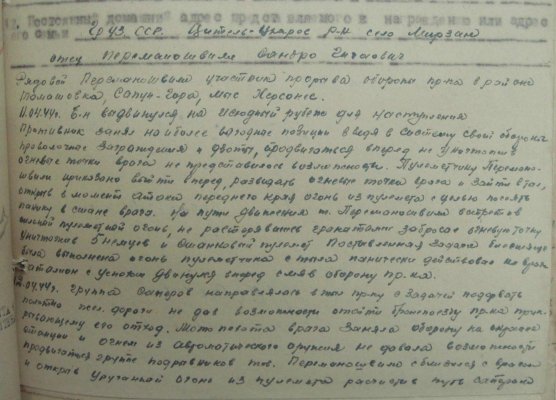 11. Постоянный домашний адрес представляемого к награждению или адрес
его семьи Груз. ССР. Цители-Цкарос Р-н село Мирзани
отец Перемаошвили Сандро
Рядовой Перемаошвили участник прорыва обороны пр-ка в районе
Томашовка, Сапун-Гора, Мыс Херсонес.
11.04.44г. Б-н выдвинулся на исходный рубеж для наступления
Противник занял наиболее выгодные позиции введя в систему своей обороны
проволочные заграждения и дзоты, продвигаться вперед не уничтожив
огневые точки врага не представлялось возможности. Пулеметчику Перемао-
швили приказано выйти вперед, разведать огневые точки врага и зайти в тыл,
открыв в момент атаки переднего края огонь из пулемета с целью посеять
панику в стане врага. На пути движения т. Перемаошвили встретив
сильный пулеметный огонь, не растерявшись гранатами забросал огневую точку
уничтожив 5 немцев и станковый пулемет Поставленная задача
была выполнена огонь пулеметчика с тыла панически действовал на врага
батальон с успехом двинулся вперед смяв оборону пр-ка.
04.44г. группа саперов направлялась в тыл пр-ку с задачей подорвать
полотно жел. дороги не дав возможности отойти бронепоезду пр-ка прик-
рывающему его отход. Мотопехота врага заняла оборону на окраине
станции и огнем из автоматического оружия не давала возможности
продвигаться группе подрывников тов. Перемаошвили сблизился с врагом
и открыв ураганный огонь из пулемета расчистив путь саперам